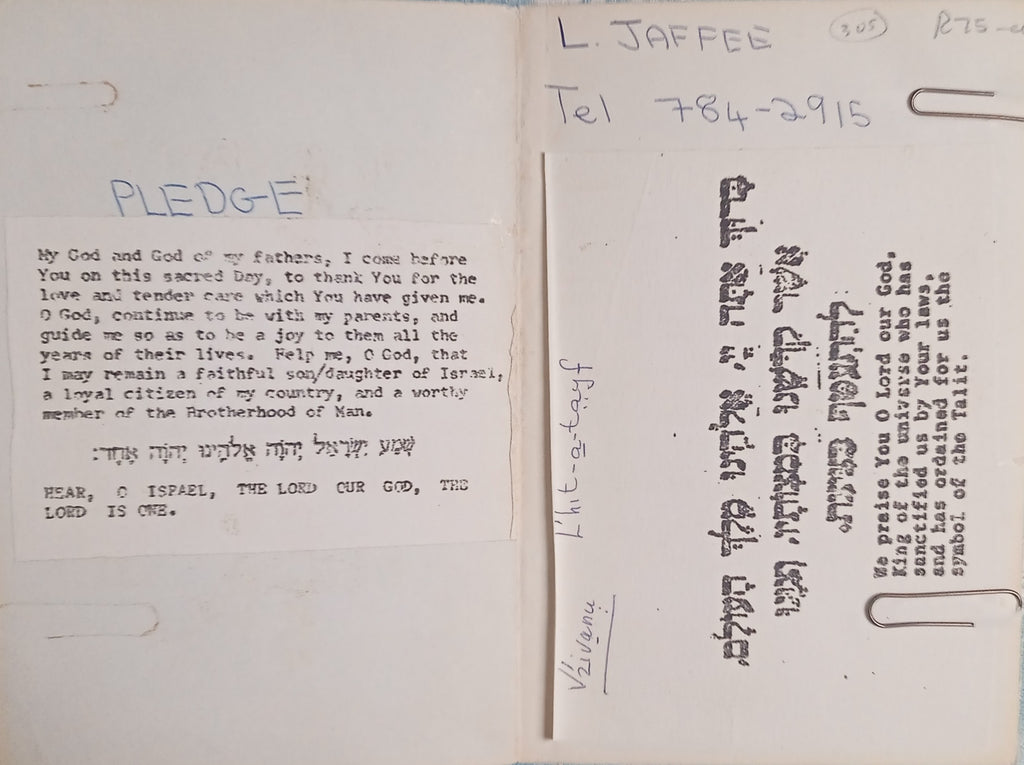 PLEDGE
My God and God of my fathers, I come before
You on this sacred Day, to thank You for the
love and tender care which You have given me.
O God, continue to be with my parents, and
guide me so as to be a joy to them all the
years of their lives. Help me, O God, that
I may remain a faithful son/daughter of Israel,
a loyal citizen of my country, and a worthy
member of the Brotherhood of Man.
שְׁמַע יִשְׂרָאֵל יְהֹוָה אֱלֹהֵינוּ יְהֹוָה אֶחָד:
HEAR, O ISRAEL, THE LORD OUR GOD, THE
LORD IS ONE.
L. JAFFEE 305
Tel 784-2915
L'hit-a-tayf
V'zivanu
בָּרוּךְ אַתָּה יְיָ אֱלֹהֵינוּ מֶלֶךְ הָעוֹלָם,
אֲשֶׁר קִדְּשָׁנוּ בְּמִצְוֹתָיו וְצִוָּנוּ
We praise You O Lord our God,
King of the universe who has
sanctified us by Your laws,
and has ordained for us the
symbol of the Talit.